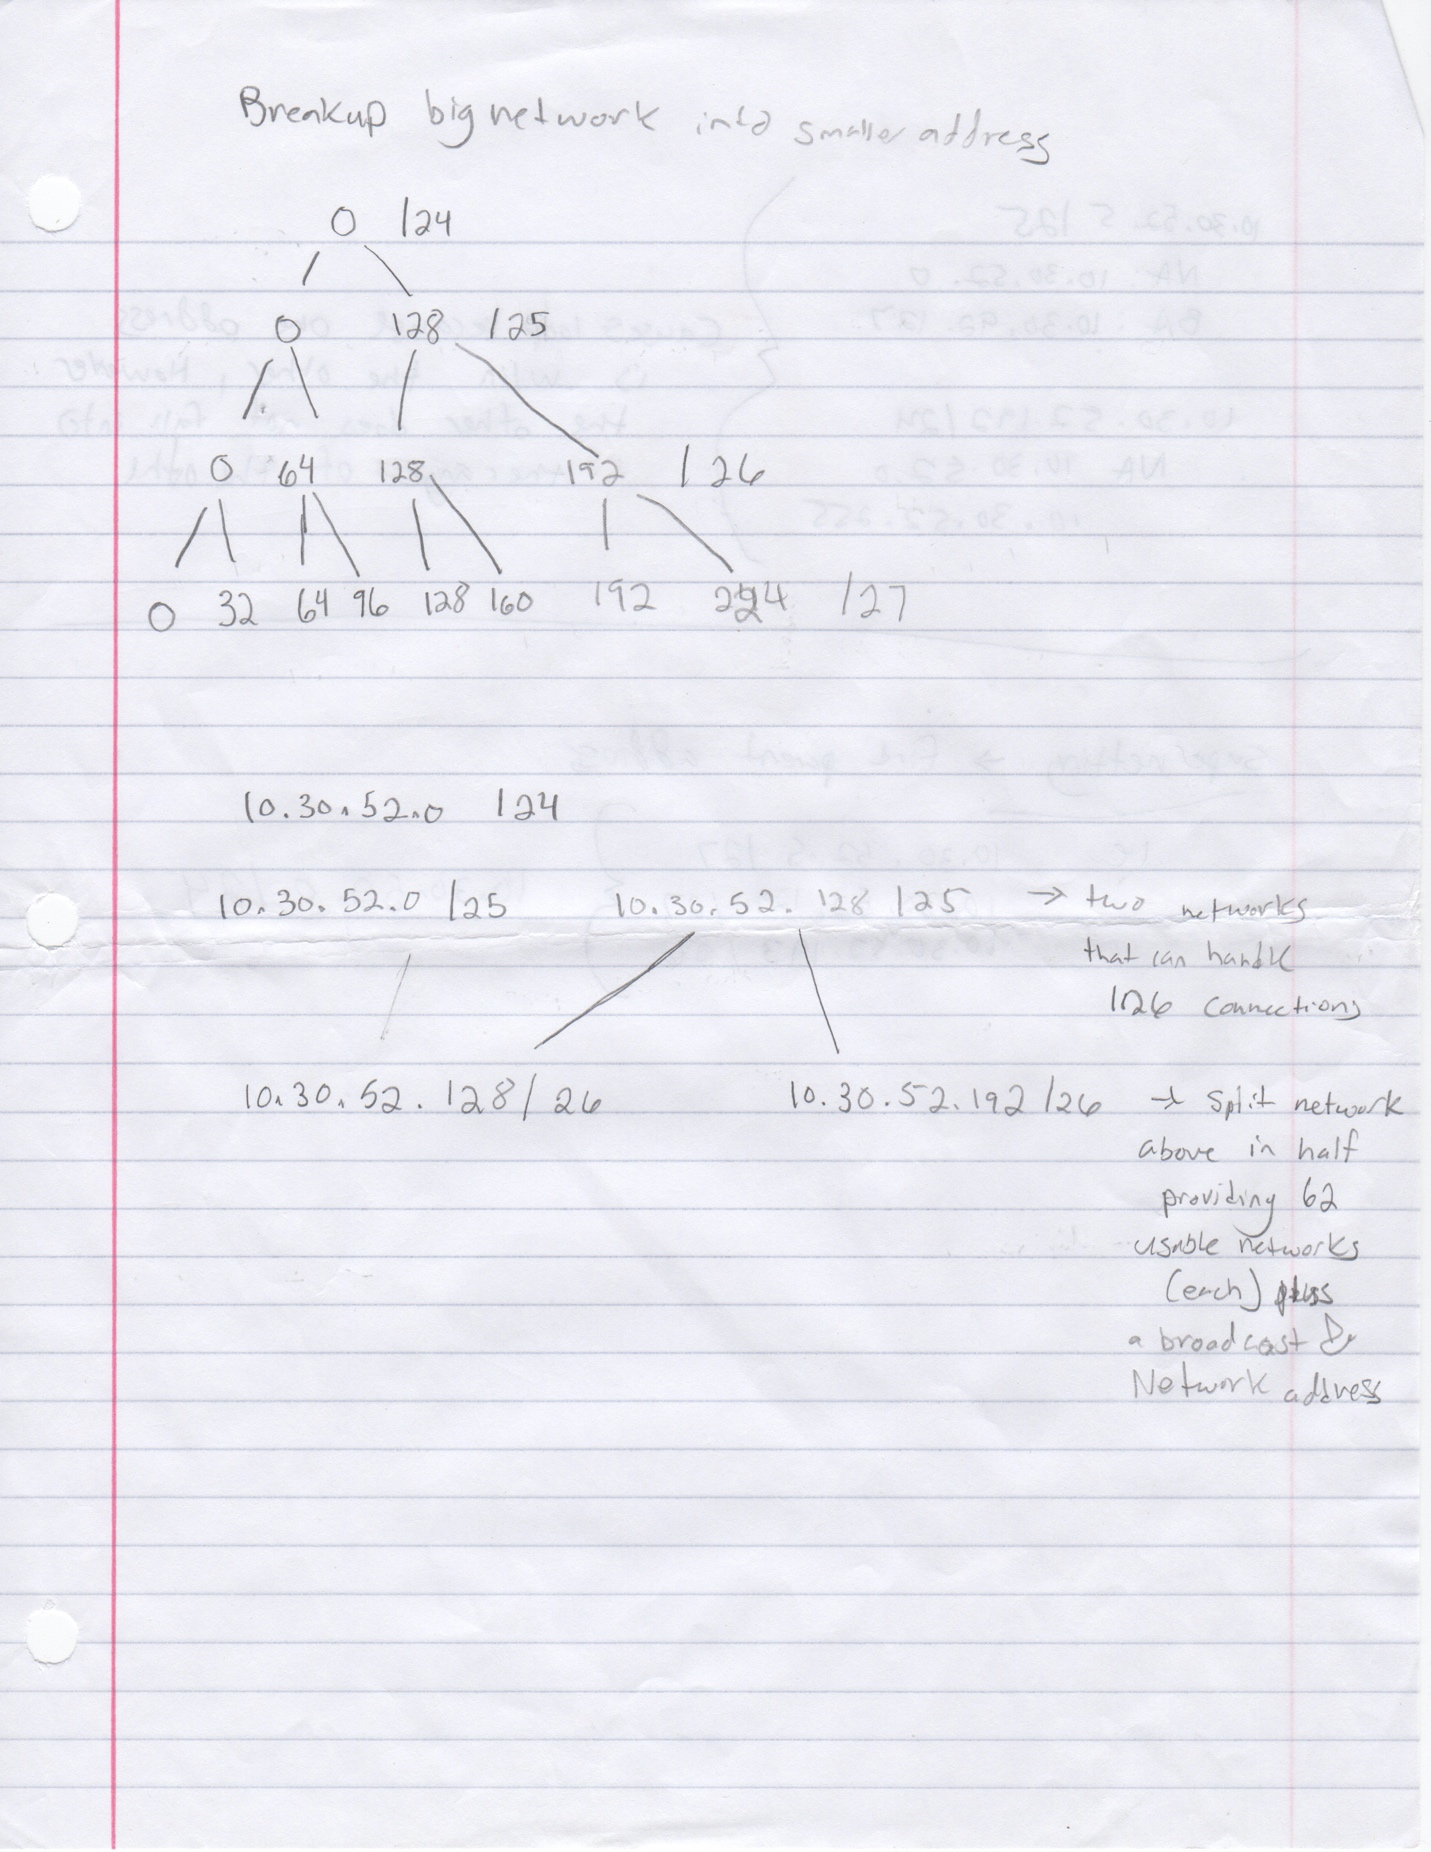 Breakup big network into smaller address
0 /24
0 128 /25
0 64 128 192 /26
0 32 64 96 128 160 192 /27
10.30.52.0 /24
10.30.52.0 /25 10.30.52. 128 /25 → two networks
that can handle
126 connections
10.30.52.128/26 10.30.52.192 /26 → Split network
above in half
providing 62
usable networks
(each) plus
a broadcast &
Network address